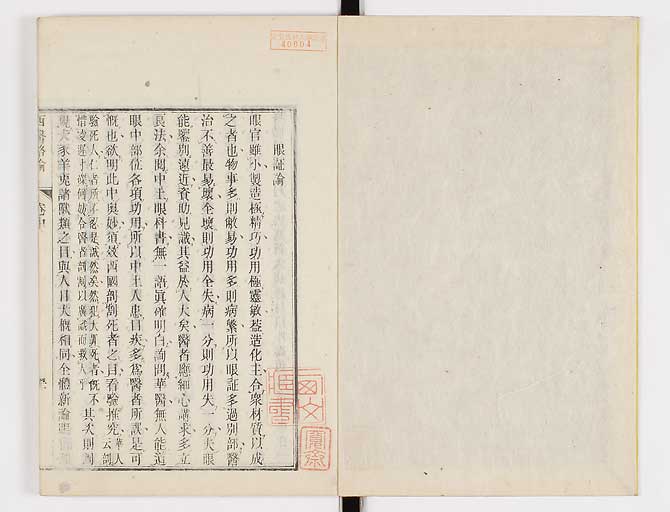 40604
眼証論
眼官雖小製造極精巧功用極靈敏葢造化主合衆材質以成
之者也物事多則敝易功用多則病繁所以眼証多過別部醫
治不善最易壞全壞則功用全失病一分則功用失一分夫眼
能鑒別遠近資助見識其益於人大矣醫者應細心講求多立
良法余閱中土眼科書無一語眞確明白詢問華醫無人能道
眼中部位各項功用所以中土人患目疾多爲醫者所誤是可
慨也欲明此中奧妙須效西國剖割死者之目看驗推究
驗死人仁者所不忍是誠然矣然犯大罪死者
惜凌遲
既不其次則用
覺犬豕羊兔諸獸類之目與人目大槪相同全體新論
西醫略論
卷中